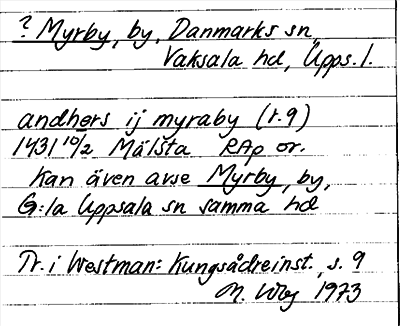 ? Myrby, by, Danmarks sn,
Vaksala hd, Upps. l.
andhers ij myraby (r. 9)
1431 10/2 Mälsta RAp or.
Kan även avse Myrby, by,
G:la Uppsala sn samma hd
Tr. i Westman: Kungsådreinst., s. 9
1973